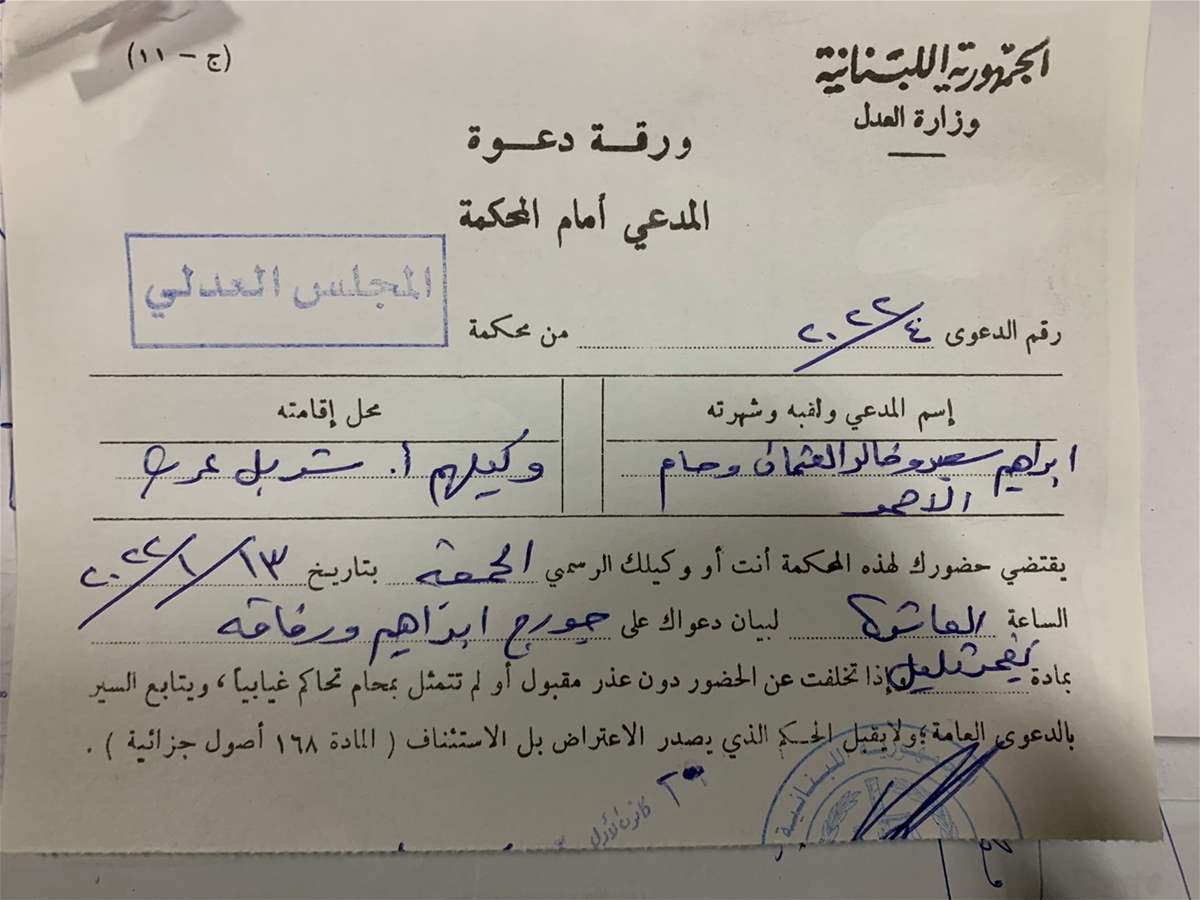 الجمهورية اللبنانية
وزارة العدل
(ج - ١١)
ورقة دعوة
المدعي أمام المحكمة
المجلس العدلي
رقم الدعوى ٤/٢٠٢٢ من محكمة
إسم المدعي ولقبه وشهرته
محل إقامته
ابراهيم سعد وخالد العثمان وحام
الاحمد
وكيلهم أ. شربل عرب
يقتضي حضورك لهذه المحكمة أنت أو وكيلك الرسمي الجمعة بتاريخ ١٣/١/٢٠٢٢
الساعة العاشرة لبيان دعواك على جورج ابراهيم ورفاقه
بمادة إذا تخلفت عن الحضور دون عذر مقبول أو لم تتمثل بمحام تحاكم غيابياً، ويتابع السير
بالدعوى العامة؛ ولا يقبل الحكم الذي يصدر الاعتراض بل الاستئناف ( المادة ١٦٨ أصول جزائية ) .
كانون الأول